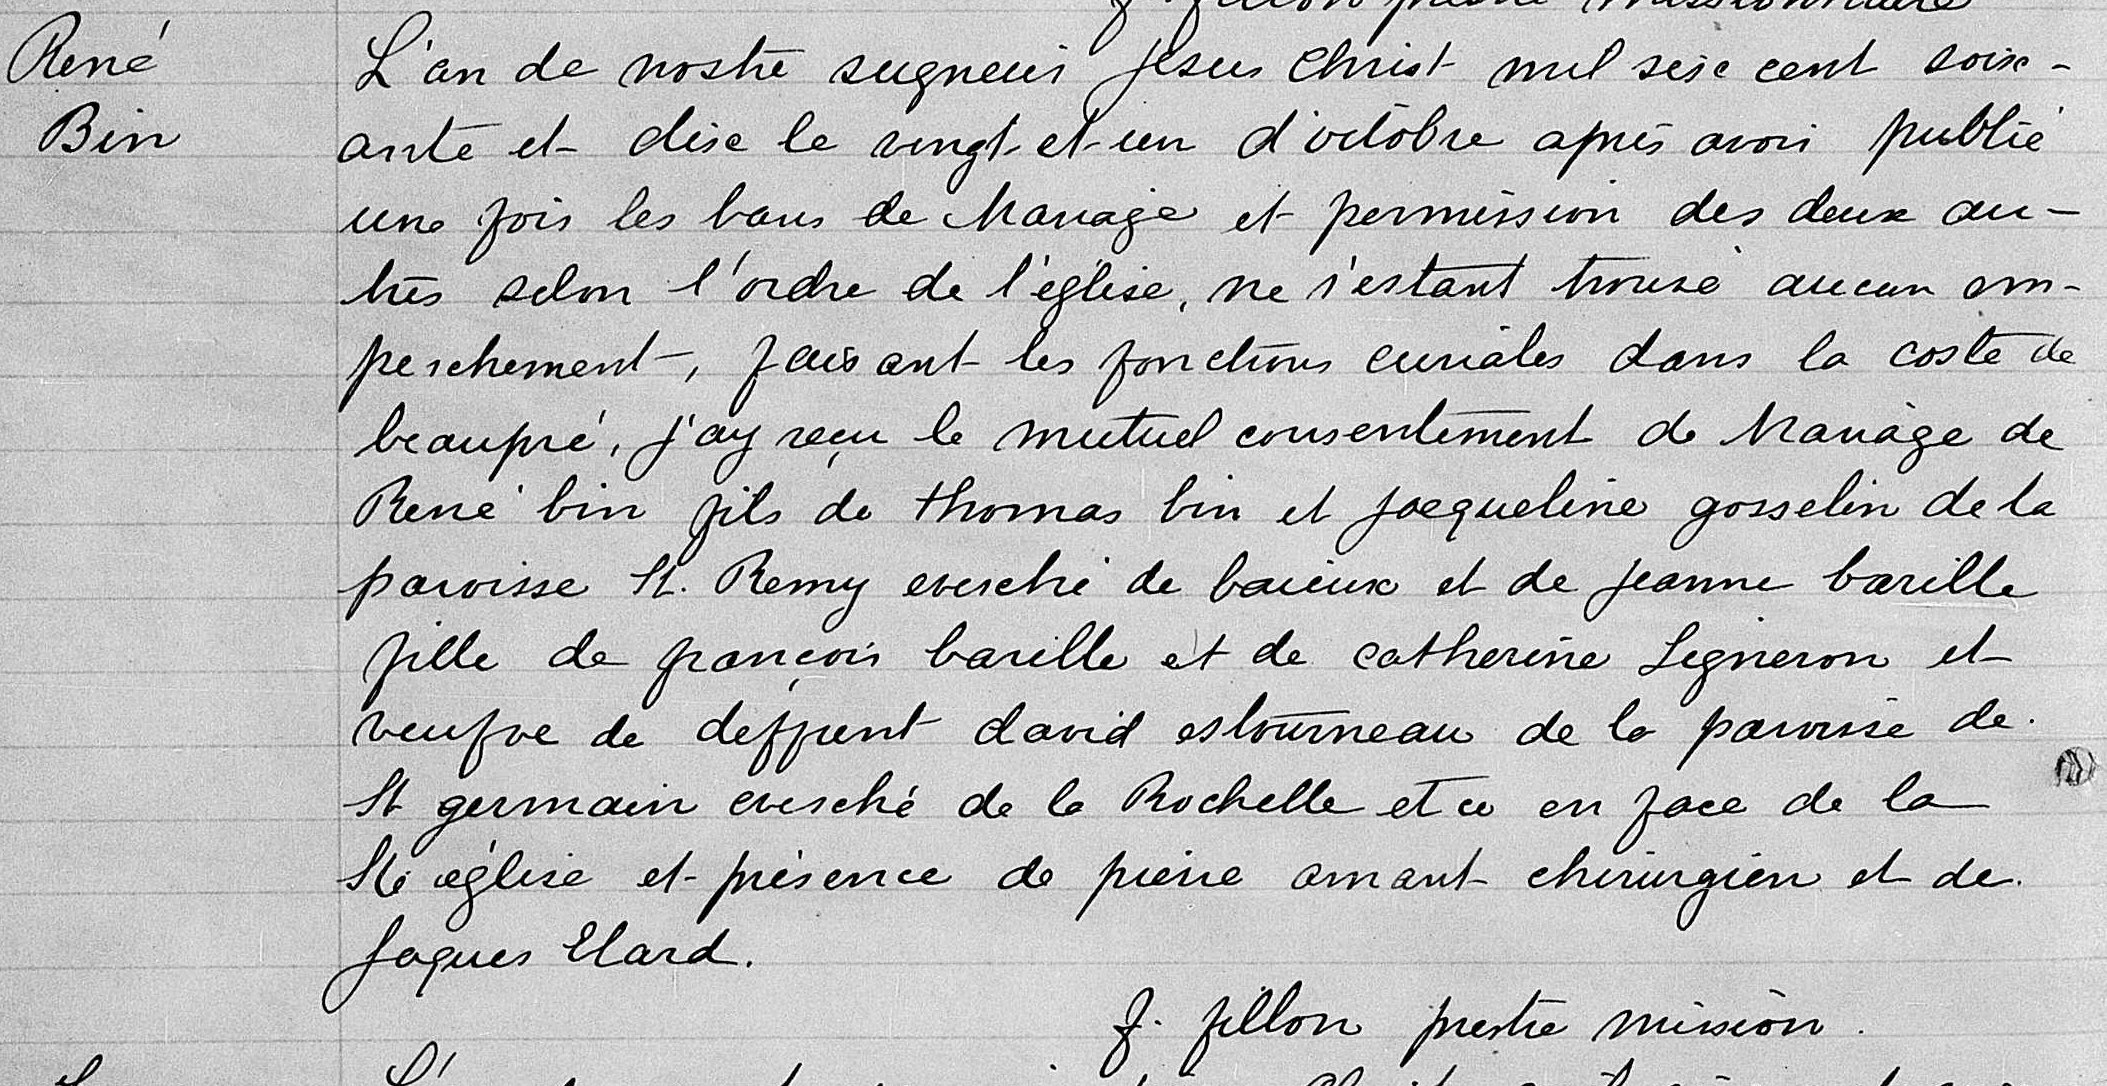 René
Bin
prestre missionnaire
L'an de nostre seigneur Jesus Christ mil seix cent soix-
ante et dixe le vingt-et-un d'octobre après avoir publié
une fois les bans de Mariage et permission des deux au-
tres selon l'ordre de l'église, ne s'estant trouvé aucun em-
peschement, faisant les fonctions curiales dans la coste de
beaupré, j'ay reçu le mutuel consentement de Mariage de
René bin fils de thomas bin et jacqueline gosselin de la
paroisse St. Remy evesché de baieux et de jeanne barille
fille de françois barille et de catherine Ligneron et
veufve de deffunt david estourneau de la paroisse de
St germain evesché de la Rochelle et ce en face de la
Ste église et présence de pierre amant chirurgien et de
Jaques Elard.
f. fillon prestre mission.